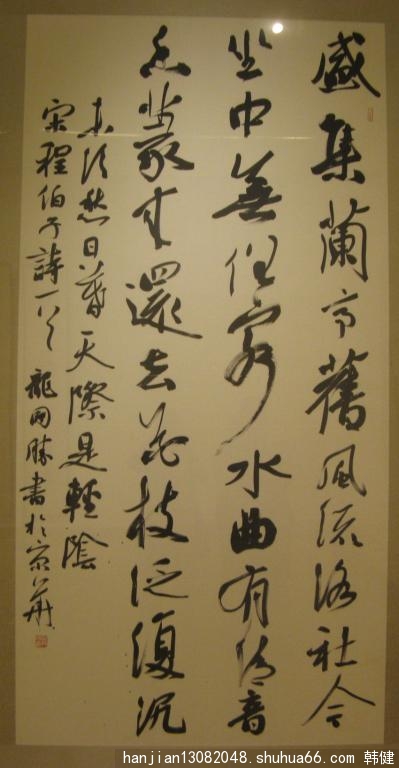 盛集蘭亭舊風流洛社今
坐中無俗客水曲有清音
香篆來還去花枝泛復沉
未須愁日暮天際是輕陰
宋程伯子詩一首 龍開勝書於京華
hanjian13082048.shuhua66.com 韩健